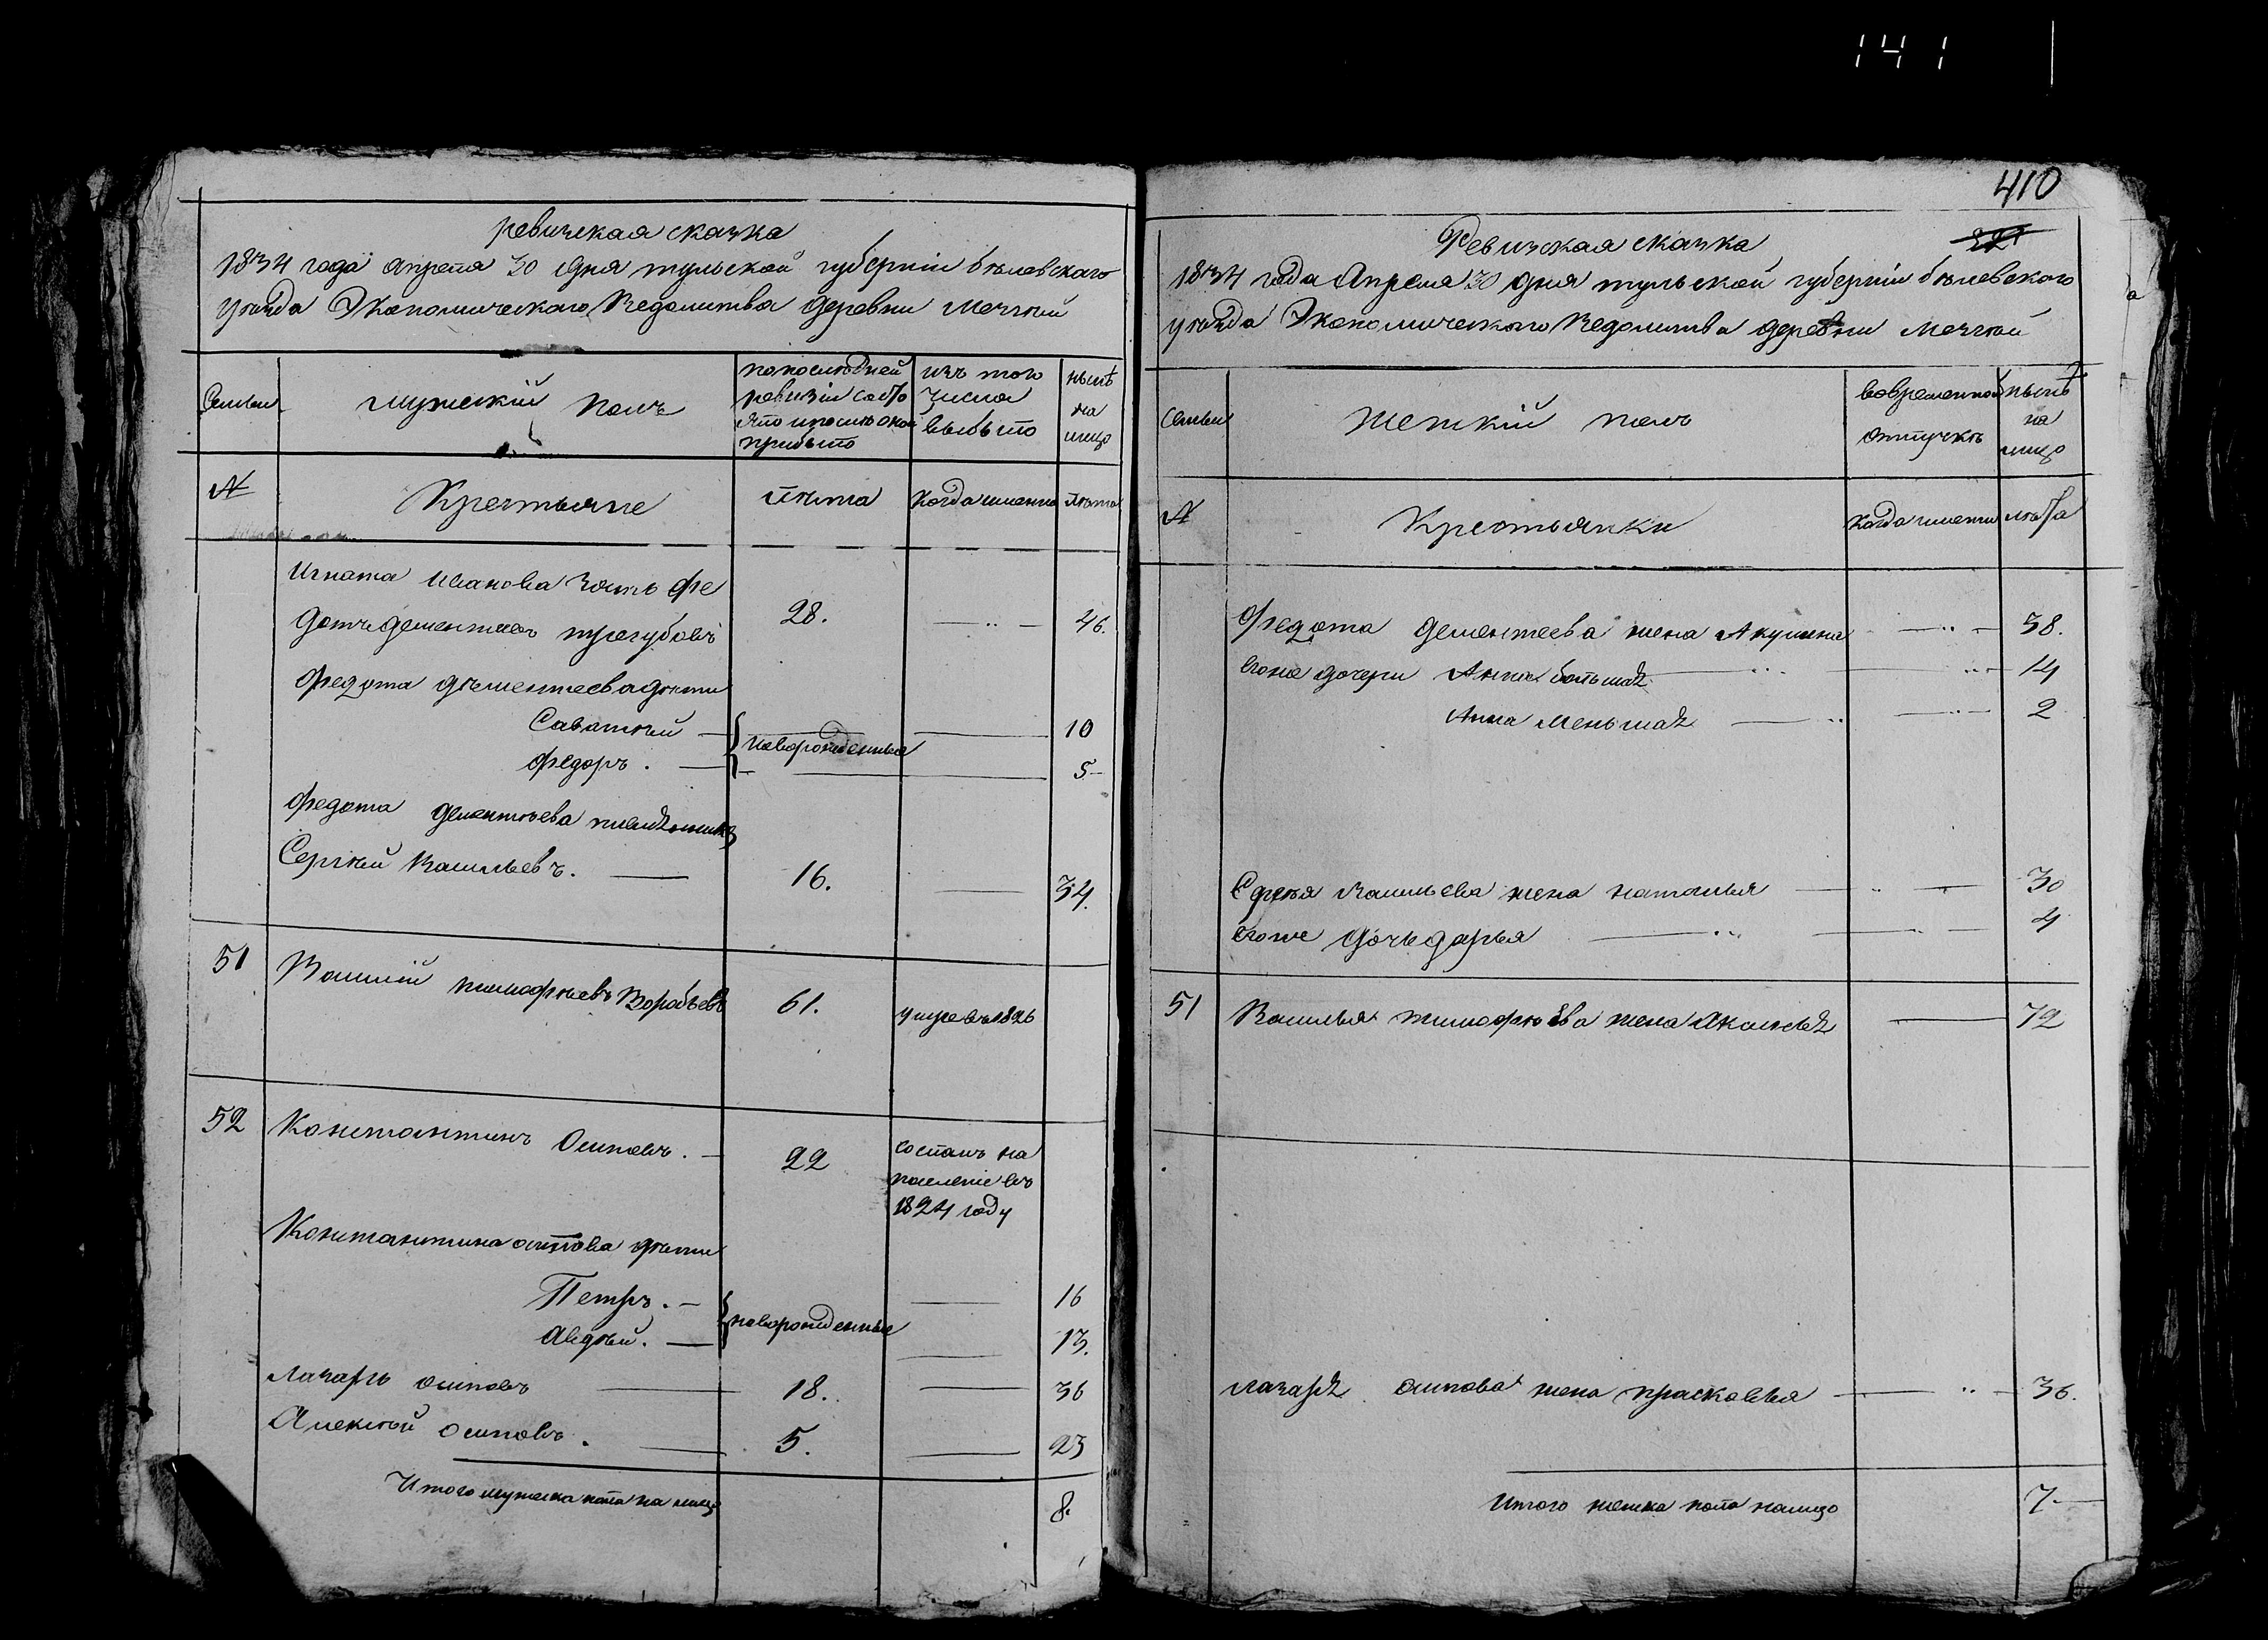 141
ревизская сказка
1834 года апреля 30 дня тульской губернiи бѣлевскаго
уѣзда Экономическаго Ведомства деревни
Семьи
мужескiй полъ
попослѣдней
ревизiи состо
яло ипослѣ оной
прибыло
изъ того
числа
выбыло
нынѣ
на
лицо
№
Крестьяне
лѣта
когда именно
лѣта
Игната Иванова зять Фе
дотъ дементьевъ
28.
46.
Федота дѣментеева дѣти
Саватѣй
новорожденные
10
Федоръ.
5
Федота дементьева племянникъ
Сергѣй Васильевъ.
16.
34.
51
Василiй тимофѣевъ Воробьевъ
61.
умре въ 1826
52
Константинъ Осиповъ.
22
сосланъ на
поселенiе въ
1824 году
Константина осипова дѣти
Петръ.
новорожденные
16
Авдѣй.
13.
Лазарь осиповъ
18.
36
Алексѣй осиповъ.
5.
23
Итого мужеска пола на лицо
8.
410
Ревизская сказка
1834 года Апреля 30 дня тульской губернiи бѣлевскаго
уѣзда Экономическаго Ведомства деревни
Семьи
женскiй полъ
вовременной
отлучкѣ
нынѣ
на
лицо
№
Крестьянки
когда именно
лѣта
Федота дементеева жена Акулина
38.
Егоже дочери Анна большая
14
Анна меньшая
2
Сергѣя Васильева жена наталья
30
Егоже дочь дарья
4
51
Василья тимофѣева жена
72
Лазаря осипова жена прасковья
36.
Итого женска пола налицо
7